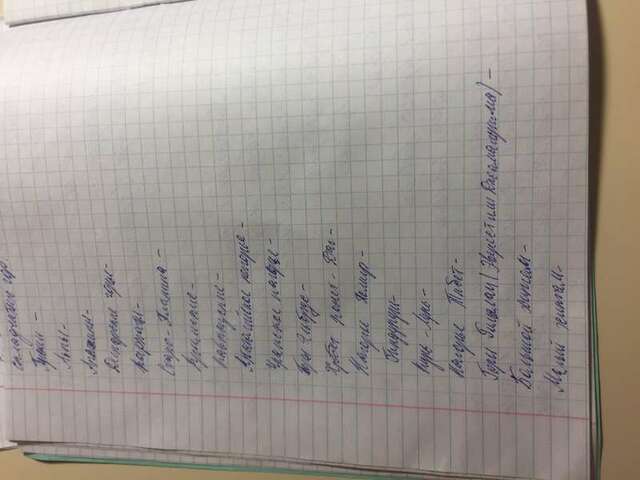 складчатых гор
Пиринеи -
Альпы -
Апенины -
Динарские горы -
Карпаты -
Старо-Планина -
Крымские -
Кавказские -
Армянское нагорье -
Иранское нагорье -
горы Эльбрус -
Хребет Копет-Даг -
Нагорье Памир -
Гиндукуш -
Кунь-Лунь -
Нагорье Тибет -
Горы Гималаи (Эверест или Джомалунгма) -
Большой хинган -
Малый хинган -